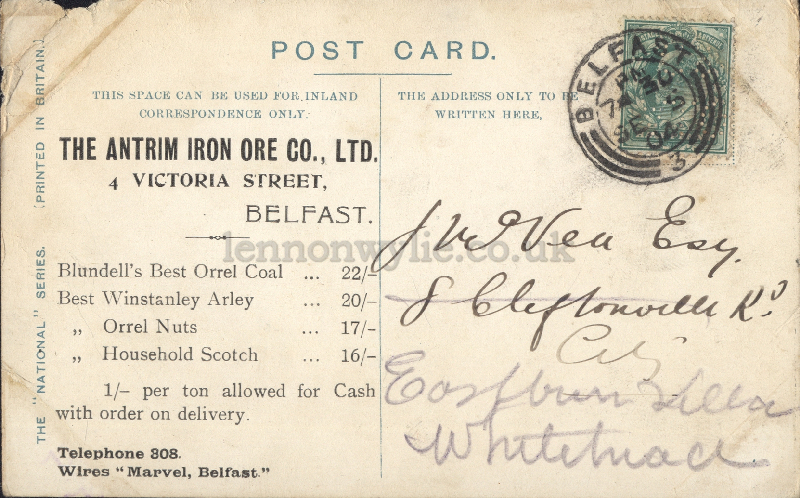 POST CARD.
THIS SPACE CAN BE USED FOR INLAND
CORRESPONDENCE ONLY.
THE ADDRESS ONLY TO BE
WRITTEN HERE,
THE ANTRIM IRON ORE CO., LTD.
4 VICTORIA STREET,
BELFAST.
Blundell's Best Orrel Coal ... 22/-
Best Winstanley Arley ... 20/-
„ Orrel Nuts ... 17/-
„ Household Scotch ... 16/-
1/- per ton allowed for Cash
with order on delivery.
Telephone 308.
Wires "Marvel, Belfast."
THE "NATIONAL" SERIES. (PRINTED IN BRITAIN.)
BELFAST
SE 5
04
3
Esq.
8 Cliftonville Rd
City
Whitehead
lennonwylie.co.uk